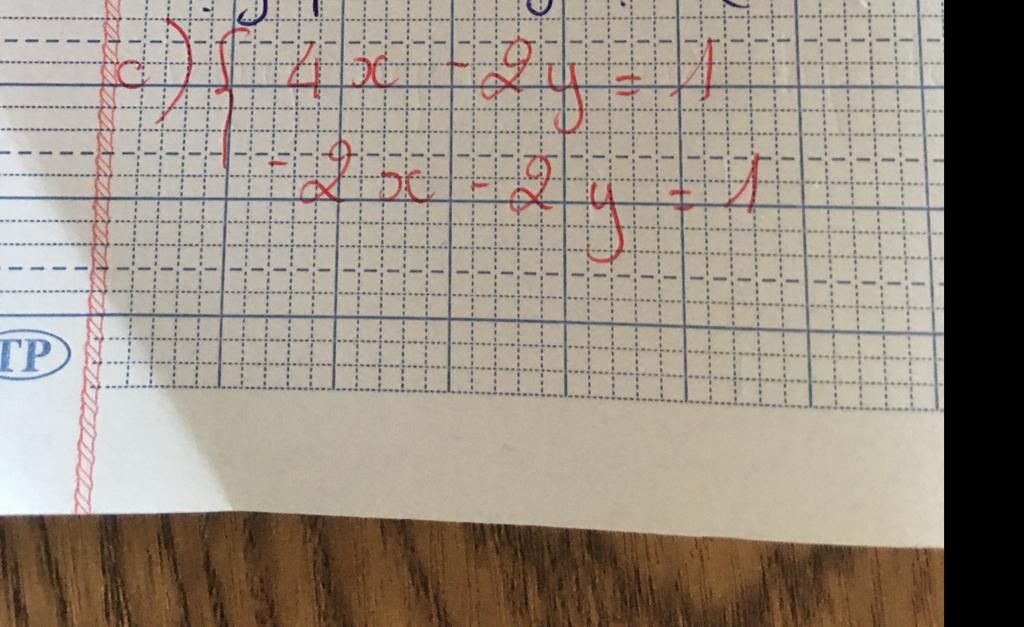 c) { 4x - 2y = 1
-2x - 2y = 1
TP